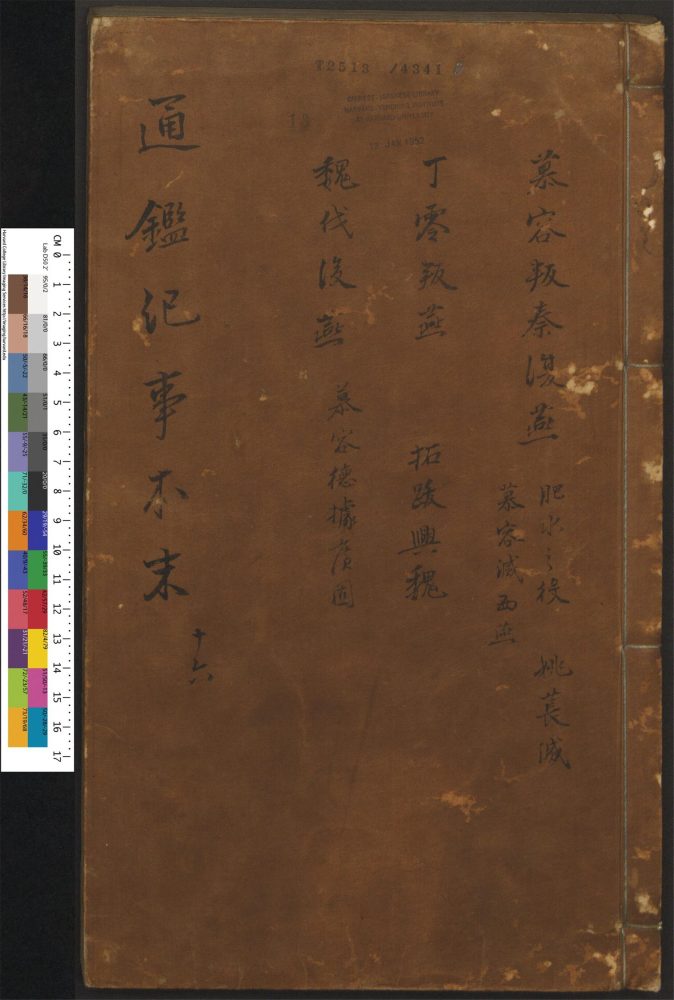 T2513 /4341
CHINESE-JAPANESE LIBRARY
HARVARD-YENCHING INSTITUTE
AT HARVARD UNIVERSITY
12 JAN 1952
慕容叛秦復燕 肥水之役 姚萇滅
慕容滅西燕
丁零叛燕 拓跋興魏
魏伐後燕 慕容德據廣固
通鑑紀事本末
十六
CM 0 1 2 3 4 5 6 7 8 9 10 11 12 13 14 15 16 17